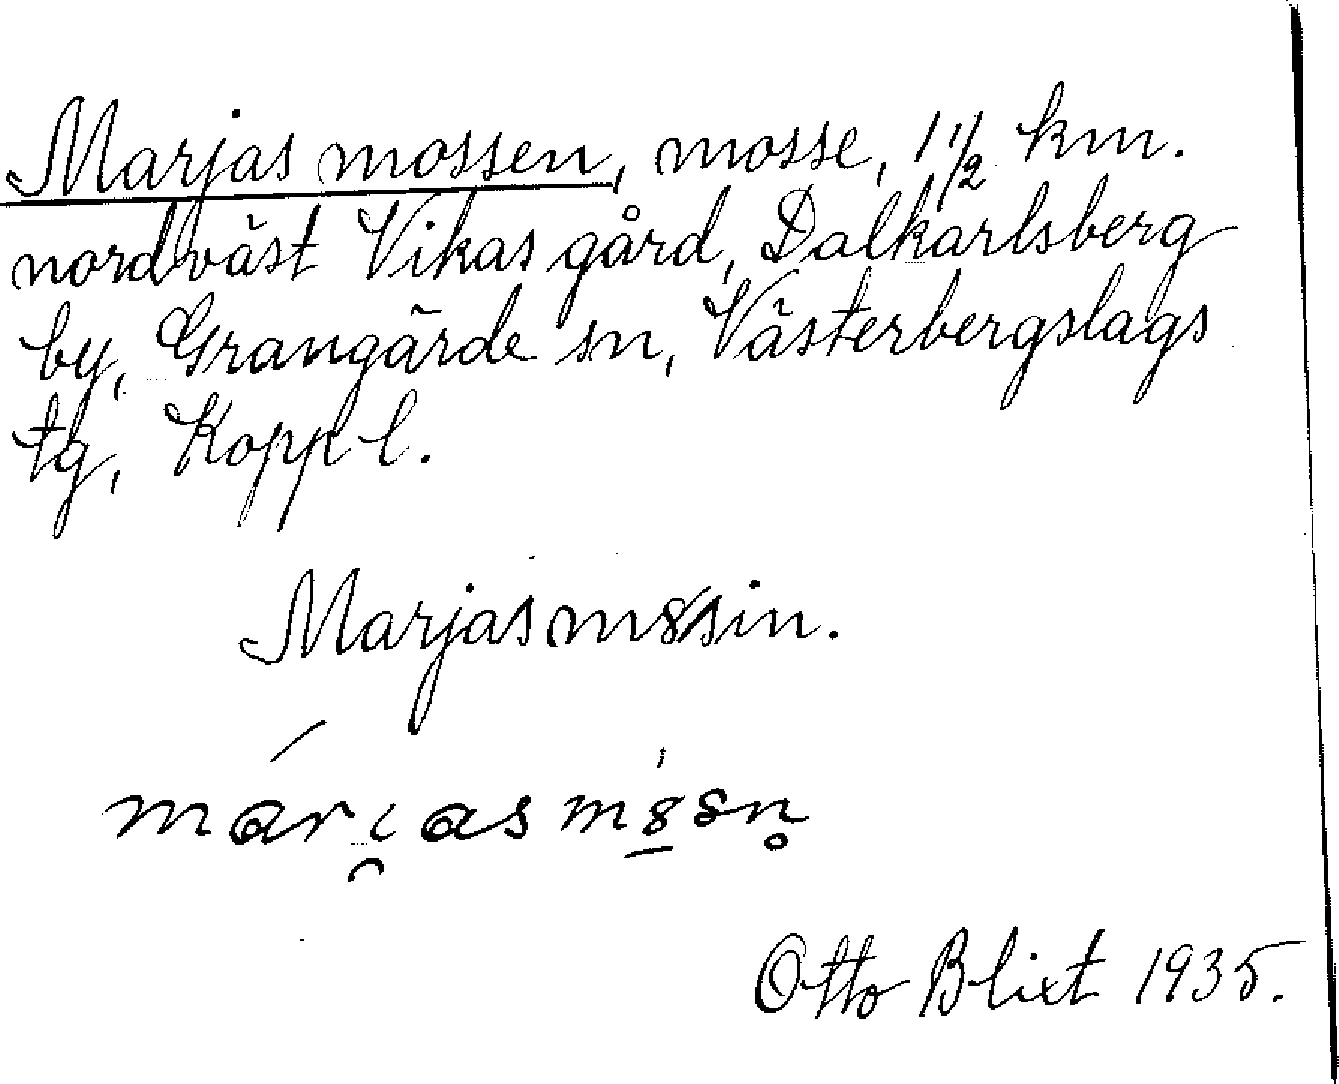 Marjasmossen, mosse, 1 1/2 km.
nordväst Vikasgård, Dalkarlsberg
by, Grangärde sn, Västerbergslags
tg, Koppl.
Marjasm8ssin.
mari̯asm8sn̥
Otto Blixt 1935.